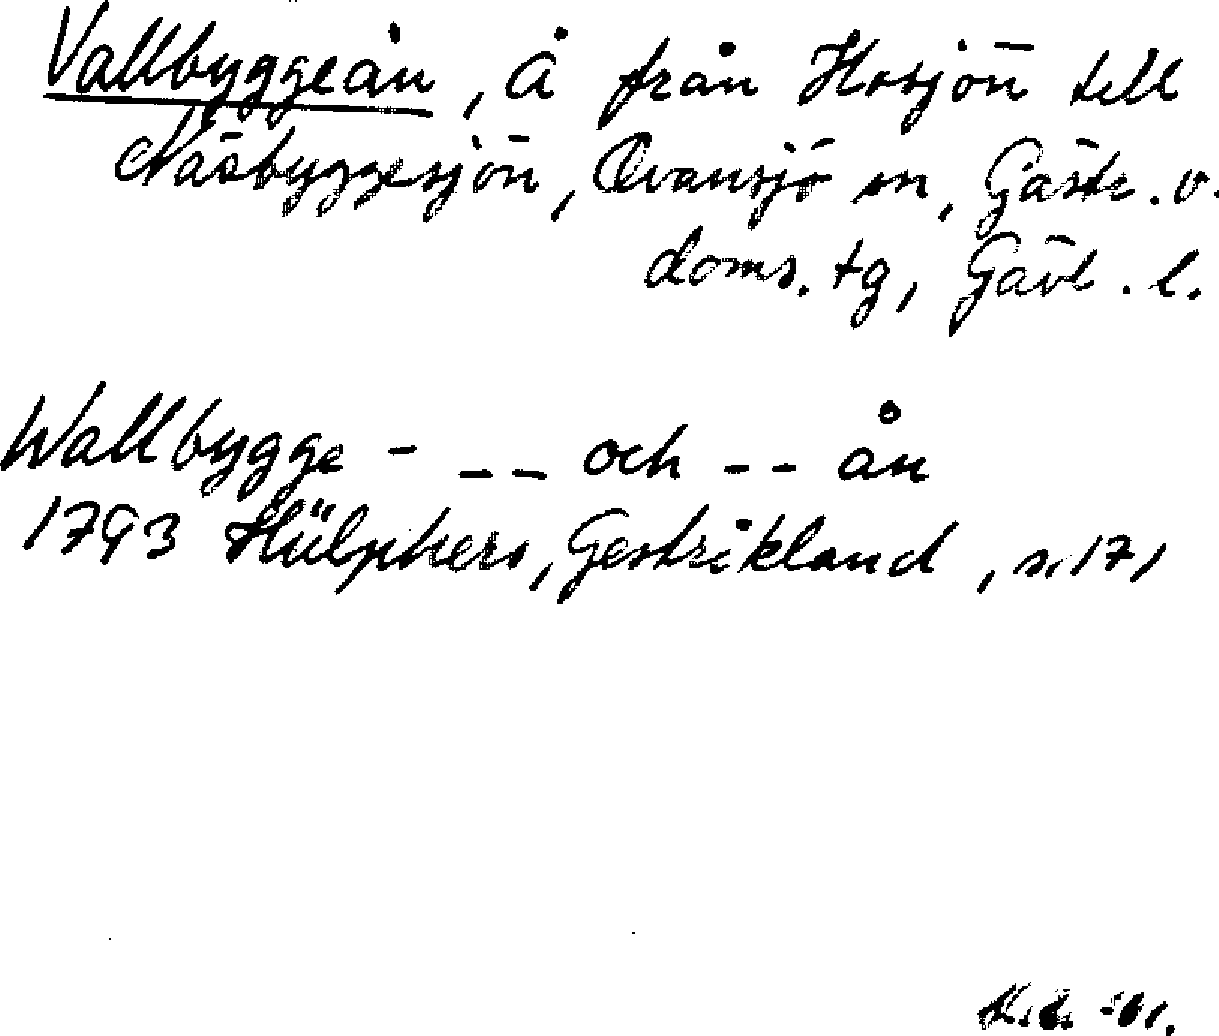 Vallbyggeån, Å från Hosjön till
Näsbyggesjön, Ovansjö sn, Gästr. v.
doms. tg, Gävl. l.
Wallbygge - _ _ och - - ån
1793 Hülphers, Gestrikland, s. 171